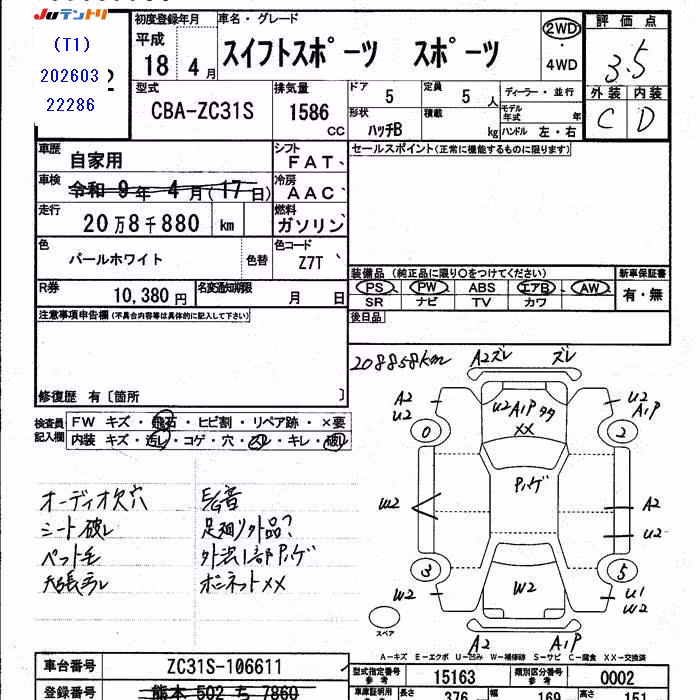 Juテントリ
(T1)
202603
22286
初度登録年月
車名・グレード
平成
18 4 月
スイフトスポーツ スポーツ
2WD
・
4WD
評価点
3.5
外装 内装
C D
型式
CBA-ZC31S
排気量
1586
CC
ドア 5
定員 5 人
形状 ハッチB
積載 kg
ディーラー・並行
モデル年式 年
ハンドル 左・右
車歴 自家用
シフト FAT
車検 令和 9年 4月(17日)
冷房 AAC
走行 20万8千880 km
燃料 ガソリン
色 パールホワイト 色替
色コード Z7T
R券 10,380 円
名変通知期限 月 日
セールスポイント(正常に機能するものに限ります)
装備品(純正品に限り○をつけてください)
PS PW ABS エアB AW
SR ナビ TV カワ
新車保証書
有・無
後日品
注意事項申告欄(不具合内容等は具体的に記入して下さい)
修復歴 有〔箇所 〕
検査員記入欄
FW キズ・飛石・ヒビ割・リペア跡・×要
内装 キズ・汚レ・コゲ・穴・スレ・キレ・破レ
オーディオ欠穴
シート破レ
ペット毛
足廻り外品?
ボンネットXX
208858km
A2ズレ ズレ
A2
U2
U2 A1P
XX
U2
A1P
0 2
Pハゲ
W2
A2
U2
3 5
W2
W2
U1
W2
A2 A1P
スペア
A-キズ E-エクボ U-凹み W-補修跡 S-サビ C-腐食 XX-交換済
車台番号 ZC31S-106611
登録番号 熊本 502 ち 7860
型式指定番号 参考 15163
類別区分番号 参考 0002
車庫証明用 長さ 376 幅 169 高さ 151